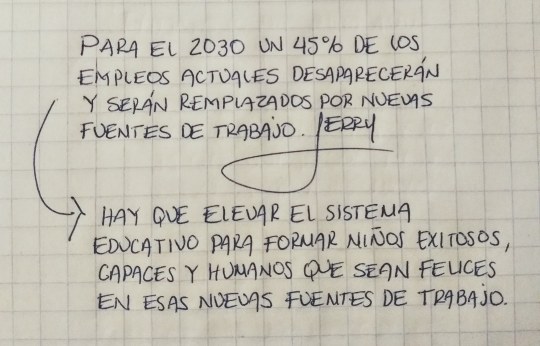 PARA EL 2030 UN 45% DE LOS
EMPLEOS ACTUALES DESAPARECERÁN
Y SERÁN REMPLAZADOS POR NUEVAS
FUENTES DE TRABAJO. JERRY
HAY QUE ELEVAR EL SISTEMA
EDUCATIVO PARA FORMAR NIÑOS EXITOSOS,
CAPACES Y HUMANOS QUE SEAN FELICES
EN ESAS NUEVAS FUENTES DE TRABAJO.